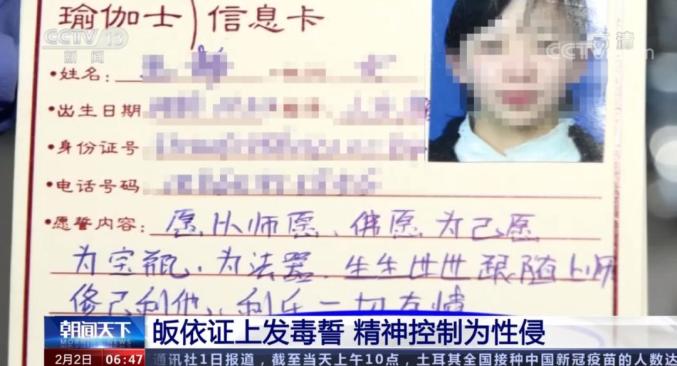 CCTV 13
新闻
CCTV.com
瑜伽士)信息卡
·姓名:
·出生日期
·身份证号
·电话号码
·愿誓内容: 愿从师愿、佛愿为己愿
为宝瓶、为法器、生生世世跟随上师
修己利他、利乐一切有情
朝闻天下
皈依证上发毒誓 精神控制为性侵
2月2日 06:47 通讯社1日报道，截至当天上午10点，土耳其全国接种中国新冠疫苗的人数达